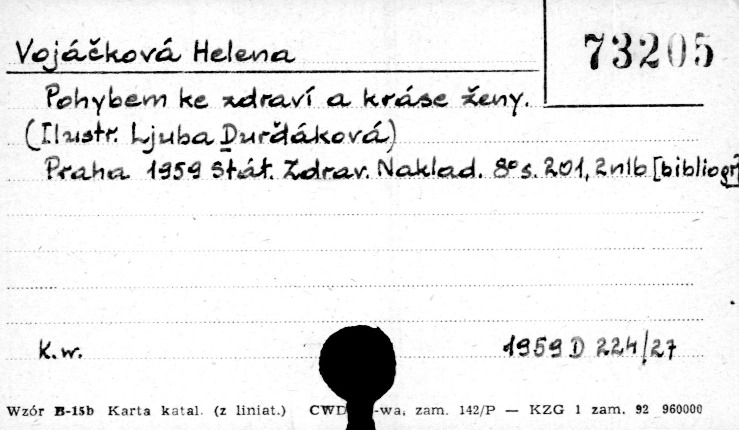 Vojáčková Helena
73205
Pohybem ke zdraví a kráse ženy.
(Ilustr. Ljuba Durďáková)
Praha 1959 Stát. Zdrav. Naklad. 8° s. 201, 2 nlb [bibliogr]
K.w.
1959 D 224/27
Wzór B-15b Karta katal. (z liniat.) CWD -wa, zam. 142/P — KZG 1 zam. 92 960000